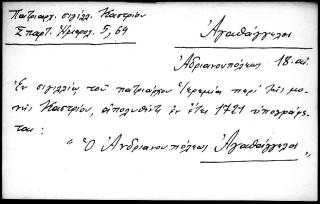 Πατριαρχ. σιγίλλ. Καστρίου
Σπαρτ. Ἡμερολ. 5, 69
Ἀγαθάγγελος
Ἀδριανουπόλεως 18. αἰ.
Ἐν σιγιλλίῳ τοῦ πατριάρχου Ἱερεμίου περὶ τῆς μο-
νῆς Καστρίου, ἀπολυθέντι ἐν ἔτει 1721 ὑπογράφε-
ται:
" Ὁ Ἀνδριανουπόλεως Ἀγαθάγγελος "